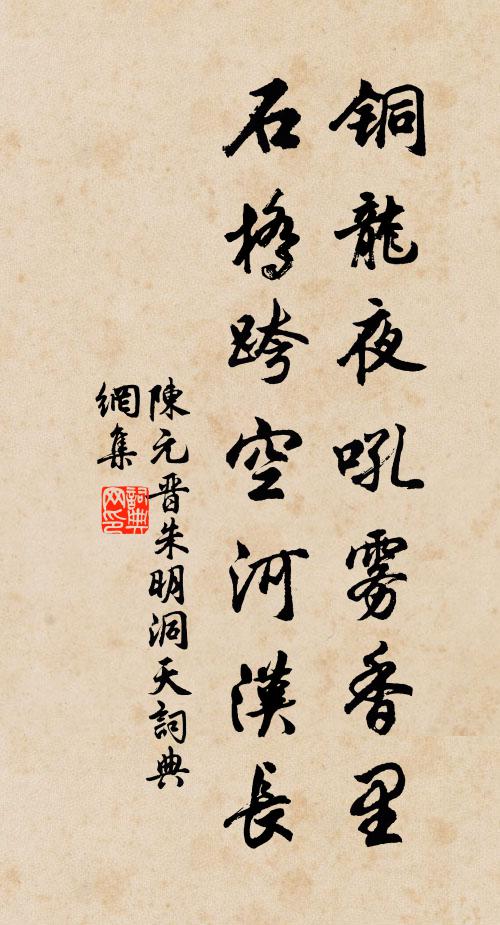 銅龍夜吼雾香里
石橋跨空河漢長
陳元晋朱明洞天詞典
網集
詞典
网印